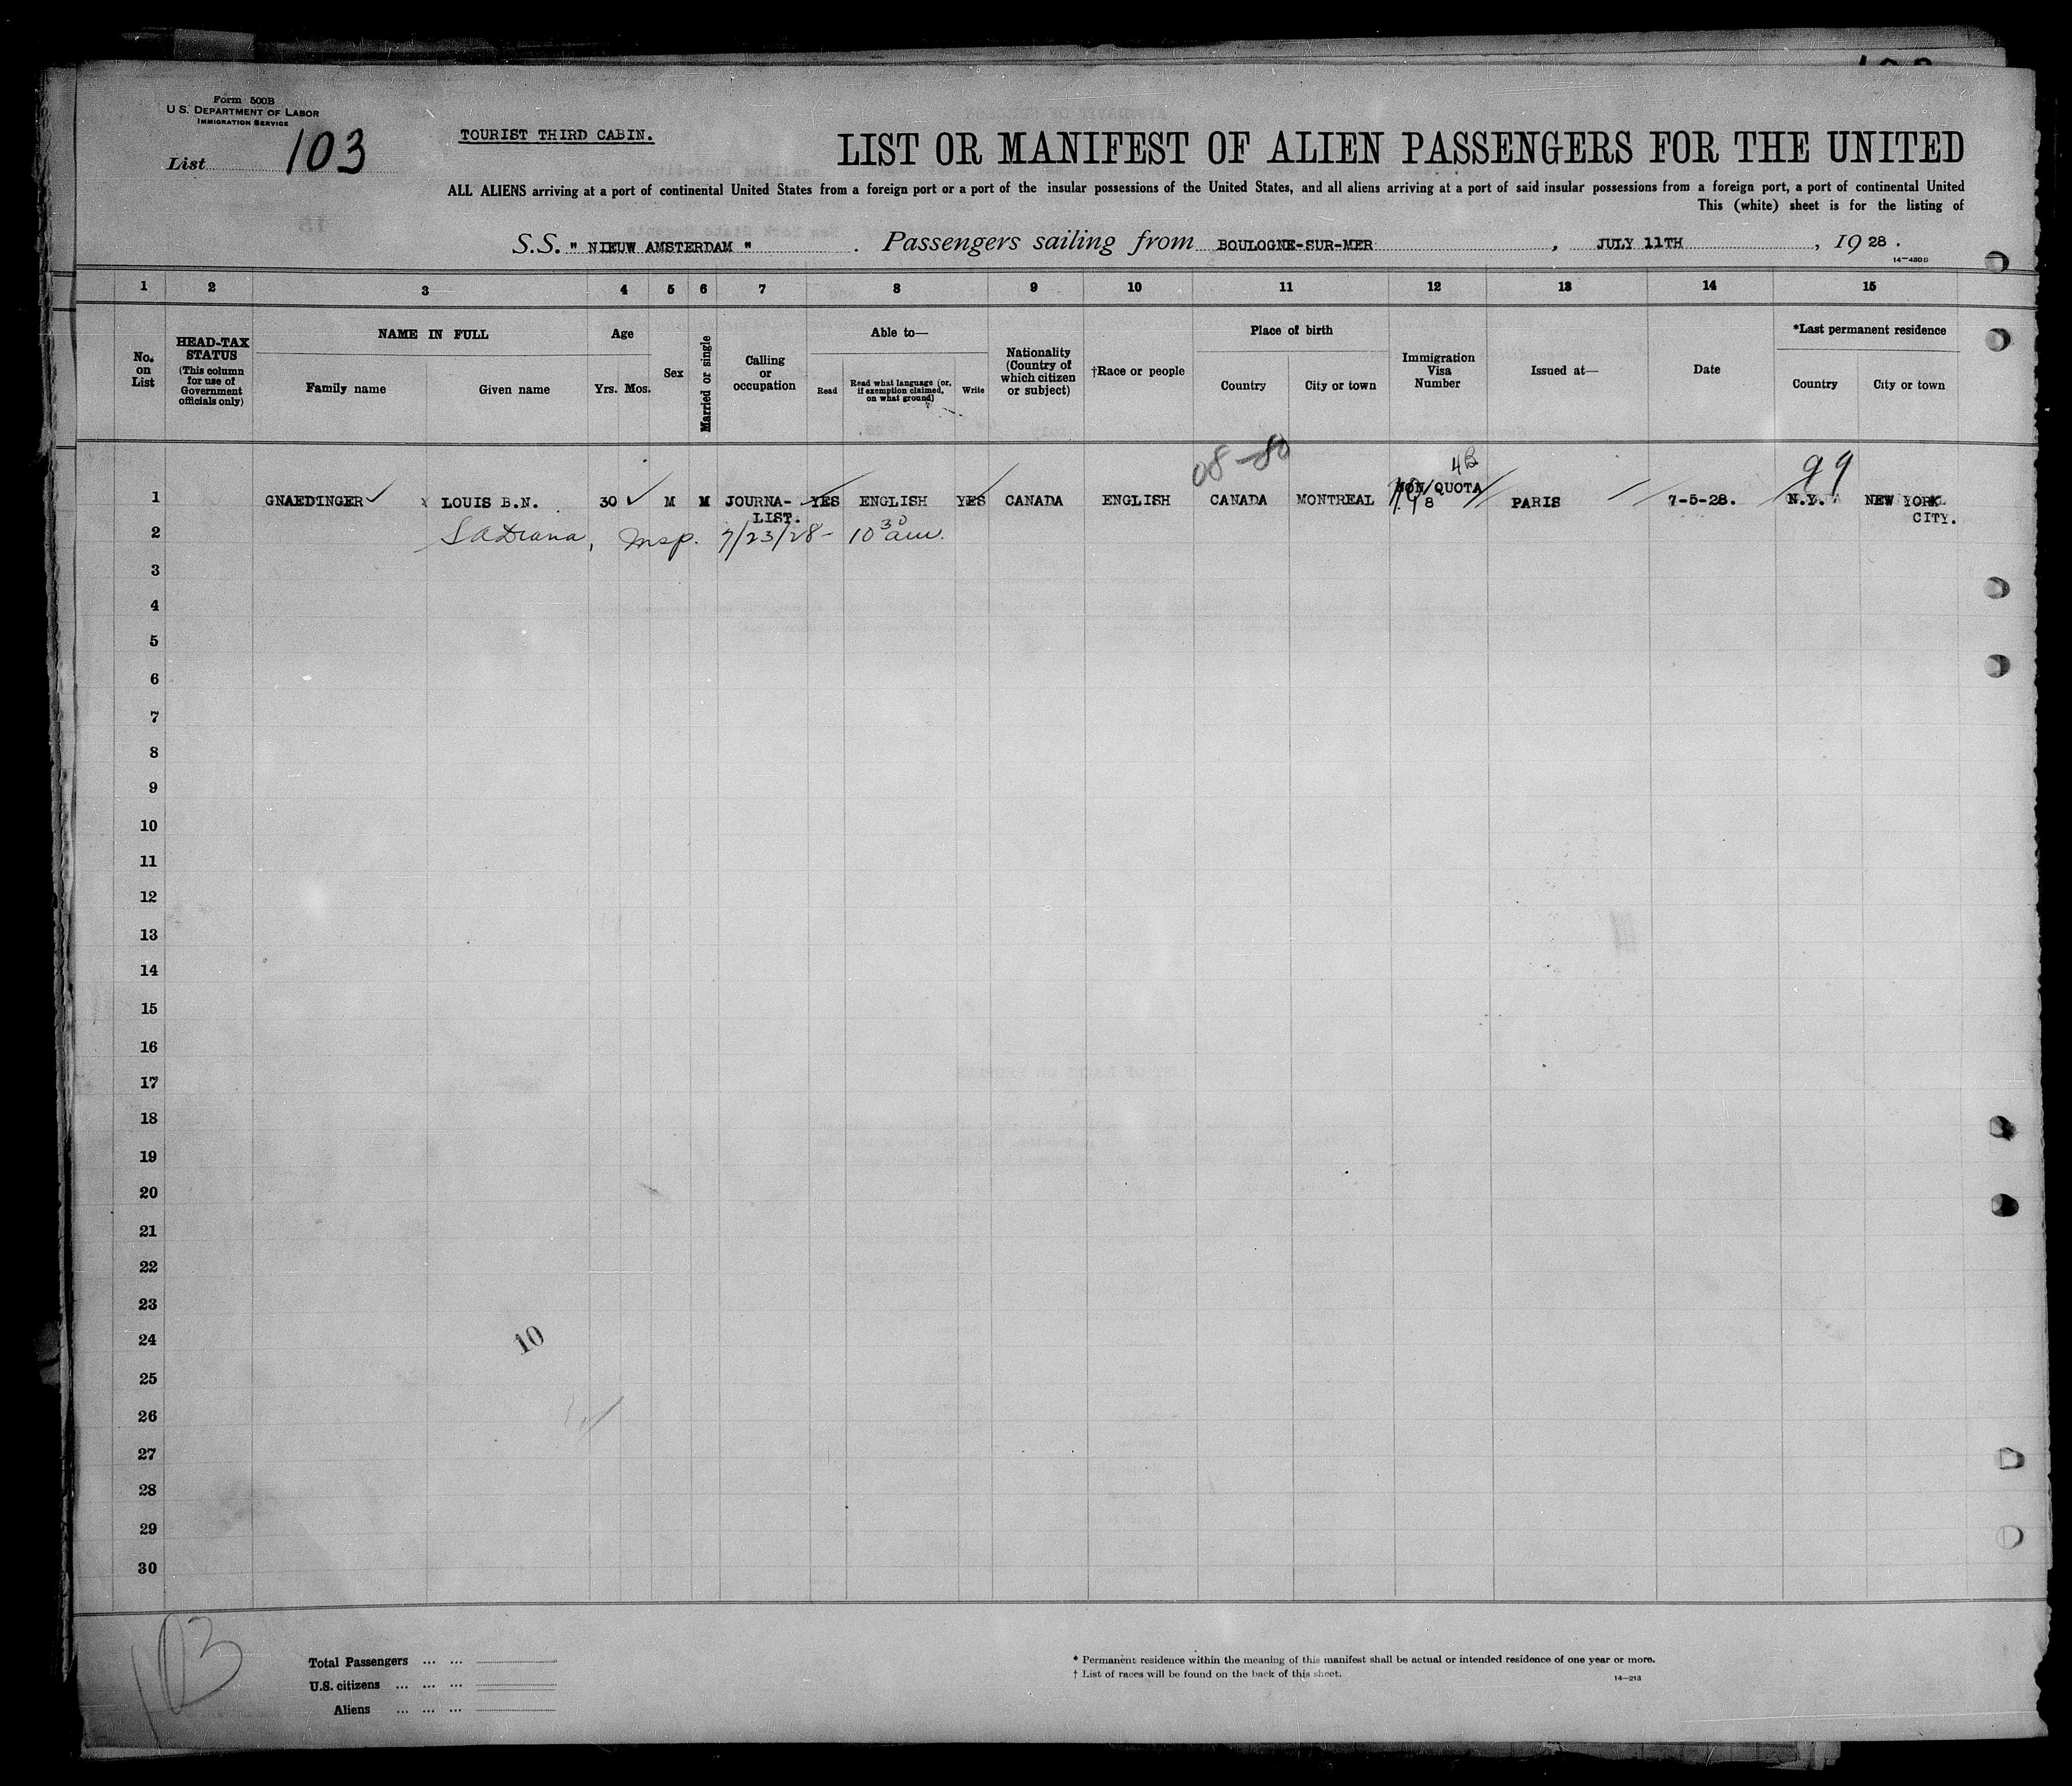 Form 500B
U.S. DEPARTMENT OF LABOR
IMMIGRATION SERVICE
List 103
TOURIST THIRD CABIN.
LIST OR MANIFEST OF ALIEN PASSENGERS FOR THE UNITED
ALL ALIENS arriving at a port of continental United States from a foreign port or a port of the insular possessions of the United States, and all aliens arriving at a port of said insular possessions from a foreign port, a port of continental United
This (white) sheet is for the listing of
S.S. " NIEUW AMSTERDAM " . Passengers sailing from BOULOGNE-SUR-MER , JULY 11TH , 19 28 .
14-430B
1 2 3 4 5 6 7 8 9 10 11 12 13 14 15
No. on List
HEAD-TAX STATUS
(This column for use of Government officials only)
NAME IN FULL
Family name Given name
Age
Yrs. Mos.
Sex
Married or single
Calling or occupation
Able to—
Read
Read what language (or, if exemption claimed, on what ground)
Write
Nationality (Country of which citizen or subject)
†Race or people
Place of birth
Country City or town
Immigration Visa Number
Issued at—
Date
*Last permanent residence
Country City or town
08-80 4B 99
1 GNAEDINGER LOUIS B.N. 30 M M JOURNA- YES ENGLISH YES CANADA ENGLISH CANADA MONTREAL NON/QUOTA 8 PARIS 7-5-28. N.Y. NEW YORK
LIST. CITY.
2 Insp. 7/23/28 - 10 30 am.
3
4
5
6
7
8
9
10
11
12
13
14
15
16
17
18
19
20
21
22
23
24
10
25
26
27
28
29
30
103
Total Passengers ... ...
U.S. citizens ... ... ...
Aliens ... ... ...
* Permanent residence within the meaning of this manifest shall be actual or intended residence of one year or more.
† List of races will be found on the back of this sheet.
14-213